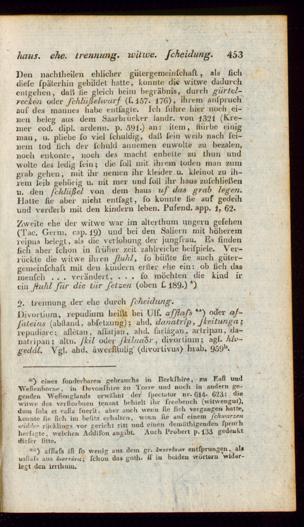 haus. ehe. trennung. witwe. ſcheidung. 453
Den nachtheilen ehlicher gütergemeinſchaft, als ſich
dieſe ſpäterhin gebildet hatte, konnte die witwe dadurch
entgehen, daß ſie gleich beim begräbnis, durch gürtel-
recken oder ſchlüßelwurf (ſ. 157. 176), ihrem anſpruch
auf des mannes habe entſagte. Ich führe hier noch ei-
nen beleg aus dem Saarbrücker landr. von 1321 (Kre-
mer cod. dipl. ardenn. p. 591.) an: item, ſtirbe einig
mau, u. pliebe ſo viel ſchuldig, daß ſein weib nach ſei-
nem tod ſich der ſchuld annemen enwolte zu bezalen,
noch enkonte, noch des macht enhette zu thun und
wolte des ledig ſein; die ſoll mit ihrem toden man zum
grab gehen, mit ihr nemen ihr kleider u. kleinot zu ih-
rem leib gehörig u. nit mer und ſoll ihr haus zuſchließen
u. den ſchlüßel von dem haus uf das grab legen.
Hatte ſie aber nicht entſagt, ſo konnte ſie auf gedeih
und verderb mit den kindern leben. Pufend. app. 1, 62.
Zweite ehe der witwe war im alterthum ungern geſehen
(Tac. Germ. cap. 19) und bei den Saliern mit höherem
reipus belegt, als die verlobung der jungfrau. Es finden
ſich aber ſchon in früher zeit zahlreiche beiſpiele. Ver-
rückte die witwe ihren ſtuhl, ſo büßte ſie auch güter-
gemeinſchaft mit den kindern erſter ehe ein: ob ſich das
menſch . . . verändert, . . . ſo möchten die kind ir
ein ſtuhl für die tür ſetzen (oben ſ. 189.) *)
2. trennung der ehe durch ſcheidung.
Divortium, repudium heißt bei Ulf. afſtaſs **) oder af-
ſateins (abſtand, abſetzung); ahd.
repudiare: afſêtan, afſatjan, ahd.
natripan; altn. ſkil oder ſkilnaðr, divortium; agſ.
Vgl. ahd. (divortivus) hrab.
*) eines ſonderbaren gebrauchs in Berkſhire, zu Eaſt und
Weſtenborne, in Devonſhire zu Torre und noch in andern ge-
genden Weſtenglands erwähnt der ſpectator nr. 614. 623: die
witwe des verſtorbnen tenant behielt ihr freebench (witwengut),
dum ſola et caſta fuerit; aber auch wenn ſie ſich vergangen hatte,
konnte ſie ſich im beſitz erhalten, wenn ſie auf einem ſchwarzen
widder rücklings vor gericht ritt und einen demüthigenden ſpruch
herſagte, welchen Addiſon angibt. Auch Probert p. 133 gedenkt
dieſer ſitte.
**) afſtaſs iſt ſo wenig aus dem gr. entſprungen, als
usſtaſs aus ſchon das goth. ſſ in beiden wörtern wider-
legt den irrthum.